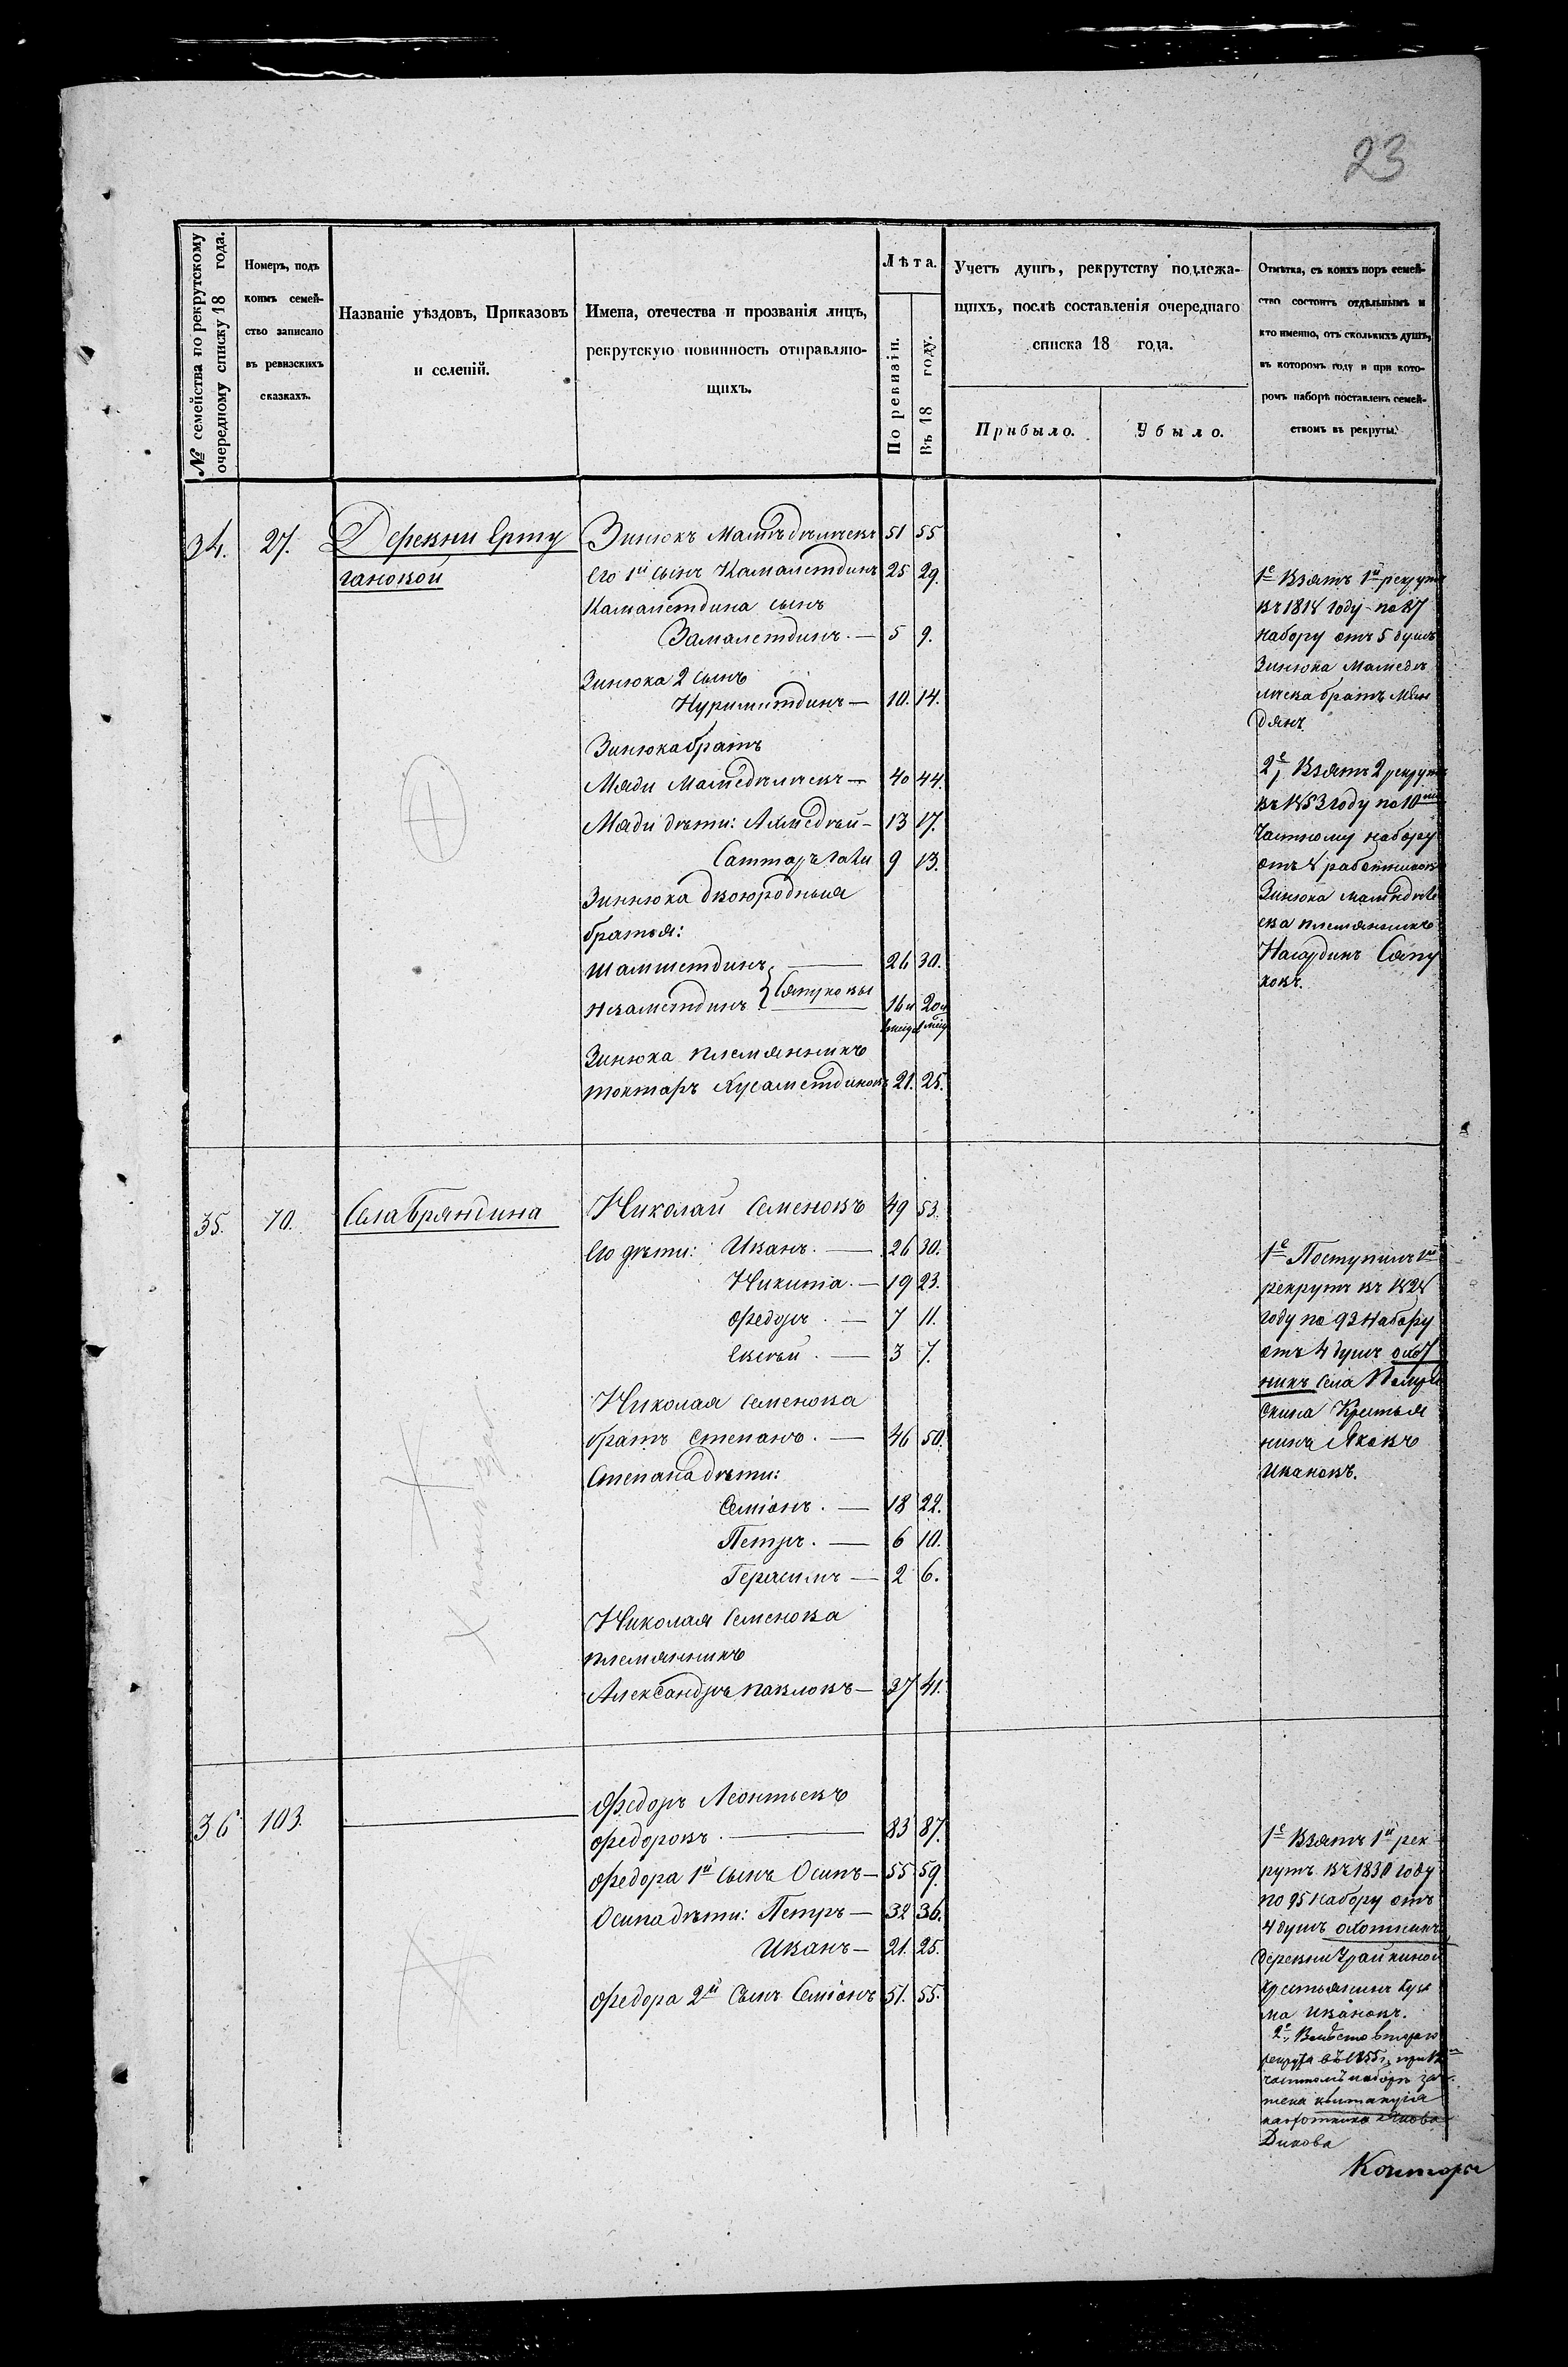 23
№ семейства по рекрутскому очередному списку 18 года.
Номеръ, подъ коимъ семейство записано въ ревизскихъ сказкахъ.
Названіе уѣздовъ, Приказовъ и селеній.
Имена, отечества и прозванія лицъ, рекрутскую повинность отправляющихъ.
Лѣта.
По ревизіи.
Въ 18 году.
Учетъ душъ, рекрутству подлежащихъ, послѣ составленія очереднаго списка 18 года.
Прибыло.
Убыло.
Отмѣтка, съ коихъ поръ семейство состоитъ отдѣльнымъ и кто именно, отъ сколькихъ душъ, въ которомъ году и при которомъ наборѣ поставленъ семействомъ въ рекруты.
34. 27. Деревни Ерту
гановой
Зинюкъ 51 55
Его 1й сынъ Камалетдинъ 25 29.
Камалетдина сынъ
Замалетдинъ. — 5 9.
Зинюка 2 сынъ
— 10. 14.
Зинюка братъ
Мяди — 40 44.
Мяди дѣти: — 13 17.
9 13.
Зинюка двоюродныя
братья:
Шамшетдинъ — 26 30.
Низаметдинъ } Сяпуковы 16 и 20 и
Зинюка племянникъ
Токтаръ Хусаметдиновъ 21. 25.
1е Взятъ 1й рекрутъ
въ 1818 году по 87
набору отъ 5 душъ
Зинюка
братъ Мин
дянъ.
2е, Взятъ 2 рекрутъ
въ 1853 году по 10
частному набору
отъ 4 работниковъ
Зинюка
племянникъ
Сяпу
ковъ.
35. 70. Села Бряндина
Николай Семеновъ 49 53.
Его дѣти: Иванъ. — 26 30.
Никита. — 19 23.
Федоръ. — 7 11.
Евсѣй. — 3 7.
Николая Семенова
братъ Степанъ. — 46 50.
Степана дѣти:
Семіонъ. — 18 22.
Петръ. — 6 10.
Герасимъ — 2 6.
Николая Семенова
племянникъ
Александръ Павловъ — 37 41.
1е Поступилъ 1й
рекрутъ въ 1828
году по 93 набору
отъ 4 душъ охот
никъ села
Крестья
нинъ Яковъ
Ивановъ.
36 103. —
Федоръ Леонтьевъ
Федоровъ. — 83 87.
Федора 1й сынъ Осипъ — 55 59.
Осипа дѣти: Петръ — 32 36.
Иванъ — 21. 25.
Федора 2й Сынъ Семіонъ 51. 55.
1е Взятъ 1й рек
рутъ въ 1830 году
по 95 набору отъ
4 душъ охотникъ
деревни Урайкиной
Крестьянинъ Кузь
ма Ивановъ.
2е, Вмѣсто втораго
рекрута въ 1855 г. при 12
частномъ наборѣ за
чтена квитанція
Дикова
Конторы